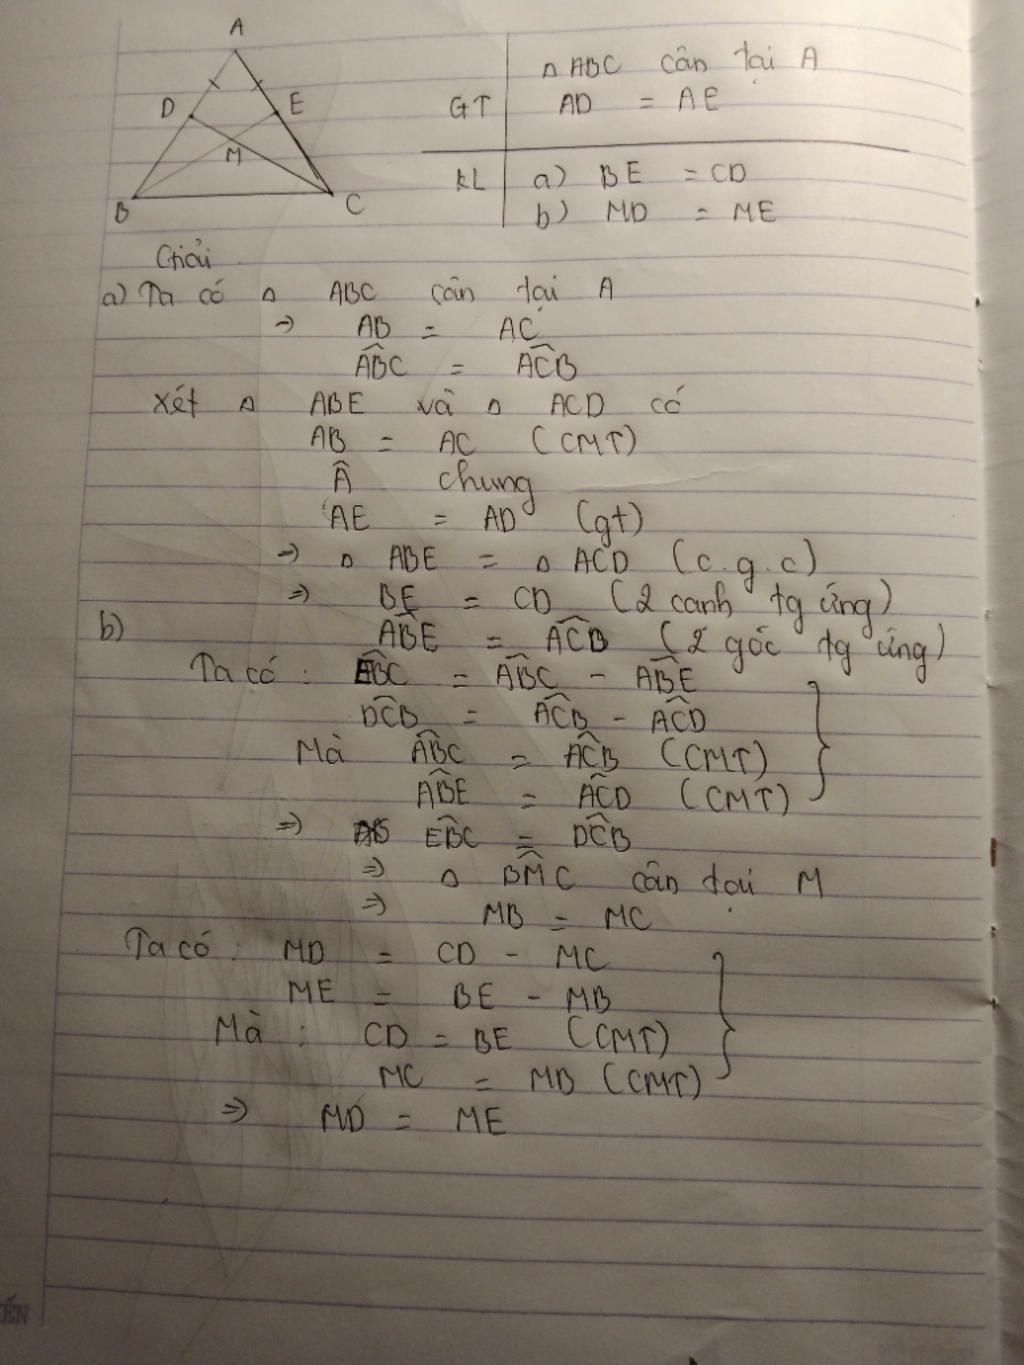 A
D
E
M
B
C
GT
Δ ABC cân tại A
AD = AE
KL
a) BE = CD
b) MD = ME
Giải
a) Ta có Δ ABC cân tại A
⇒ AB = AC
A͡BC = A͡CB
Xét Δ ABE và Δ ACD có
AB = AC (CMT)
Â chung
AE = AD (gt)
⇒ Δ ABE = Δ ACD (c.g.c)
⇒ BE = CD (2 cạnh tg ứng)
A͡BE = A͡CB (2 góc tg ứng)
b)
Ta có : E͡BC = A͡BC - A͡BE
D͡CB = A͡CB - A͡CD
Mà A͡BC = A͡CB (CMT)
A͡BE = A͡CD (CMT)
⇒ E͡BC = D͡CB
⇒ Δ BM͡C cân tại M
⇒ MB = MC
Ta có : MD = CD - MC
ME = BE - MB
Mà : CD = BE (CMT)
MC = MB (CMT)
⇒ MD = ME
ẾN